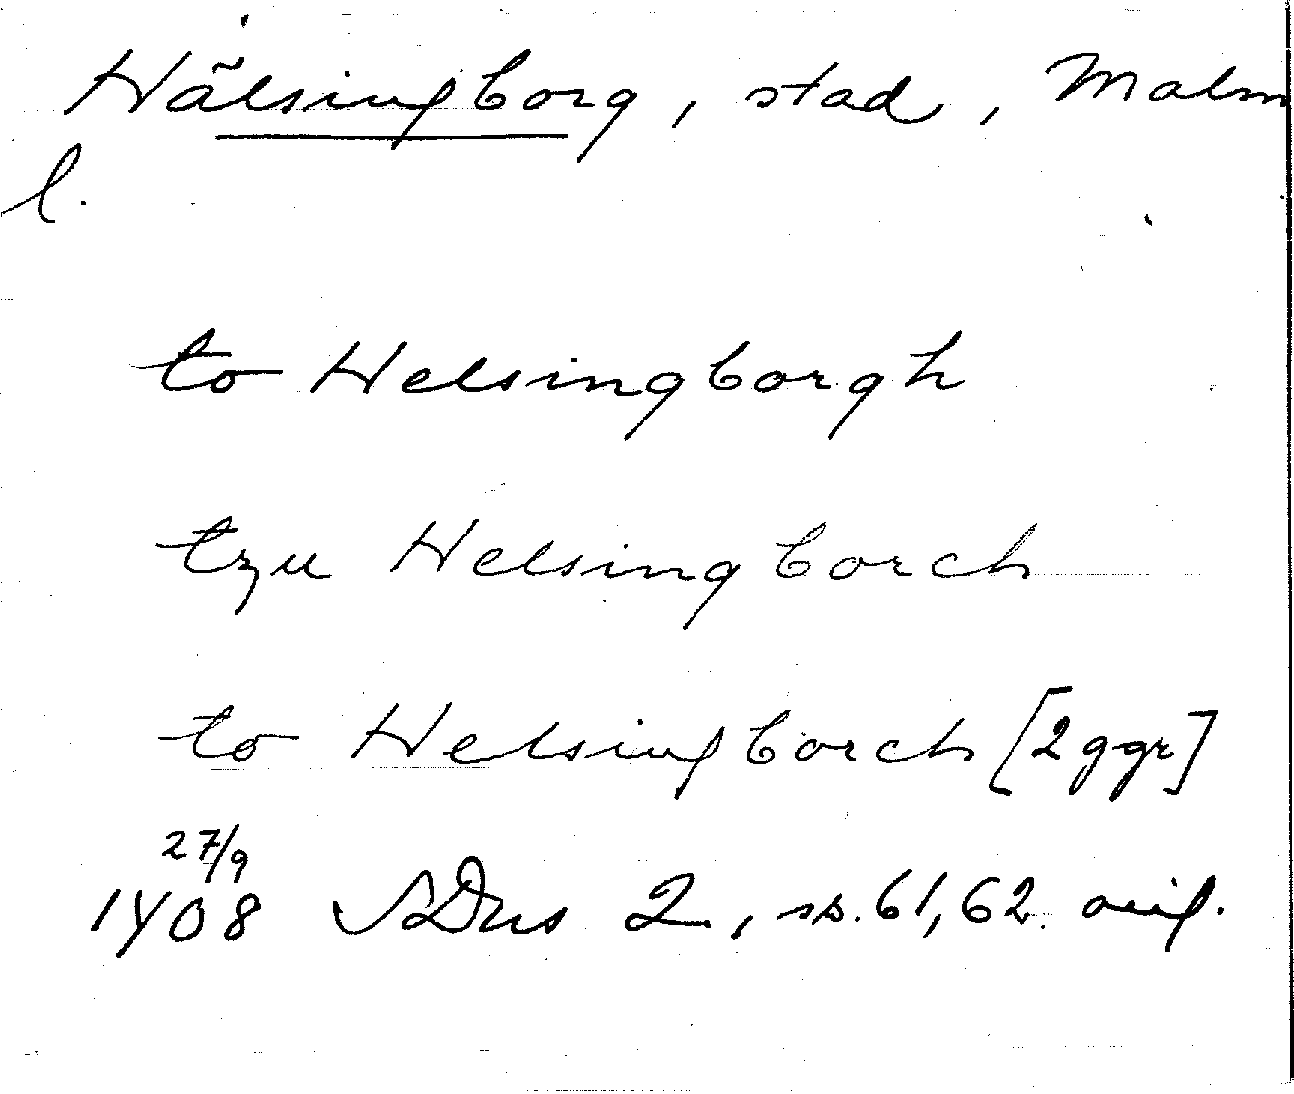 Hälsingborg, stad, Malm
l.
to Helsingborgh
tzu Helsingborch
to Helsingborch [2 ggr]
27/9
1408 SDns 2, ss. 61, 62. orig.